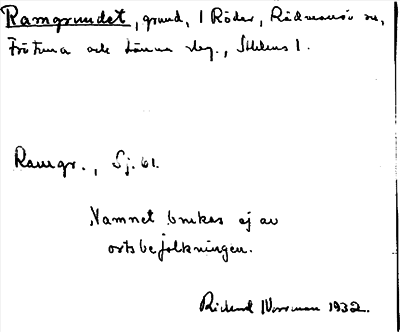 Ramgrundet, grund, 1 Röder, Rådmansö sn,
Frötuna och Länna slg., Sthlms l.
Ramgr., Sj. 61.
Namnet brukas ej av
ortsbefolkningen.
Richard Norrman 1932.